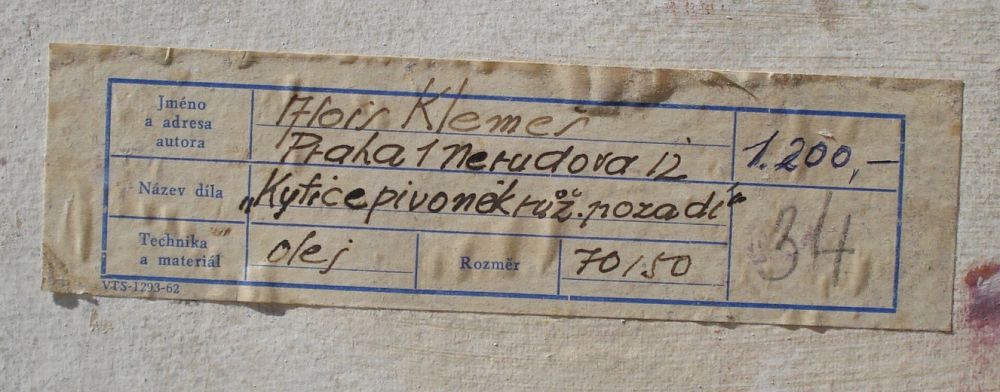 Jméno
a adresa
autora
Alois Klemeš
Praha 1 Nerudova 12
1.200,-
Název díla
„Kytice pivoněk růž. pozadí"
34
Technika
a materiál
olej
Rozměr
70/50
VTS-1293-62